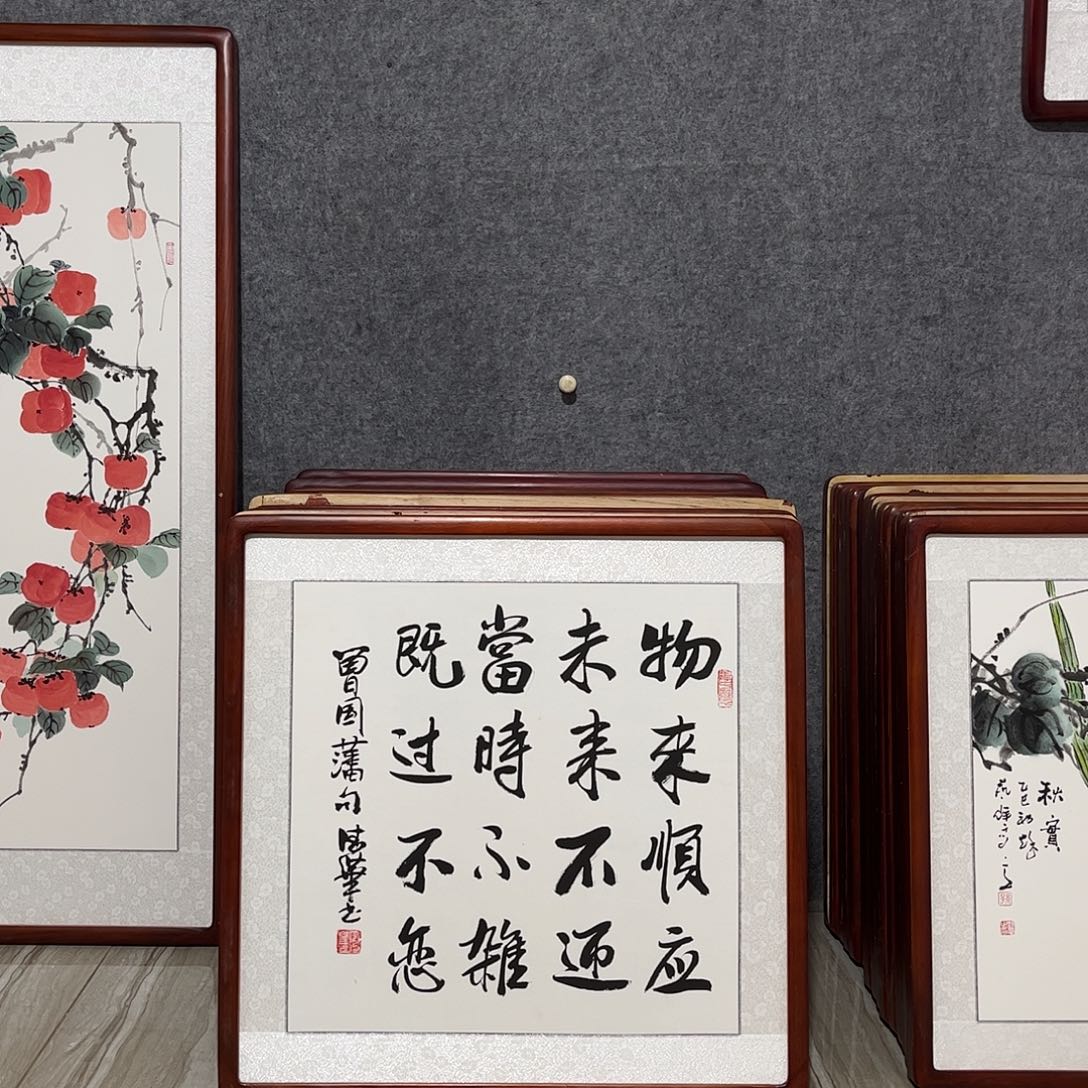 物来順应
未来不迎
當時不雑
既过不恋
曾国藩句
秋實